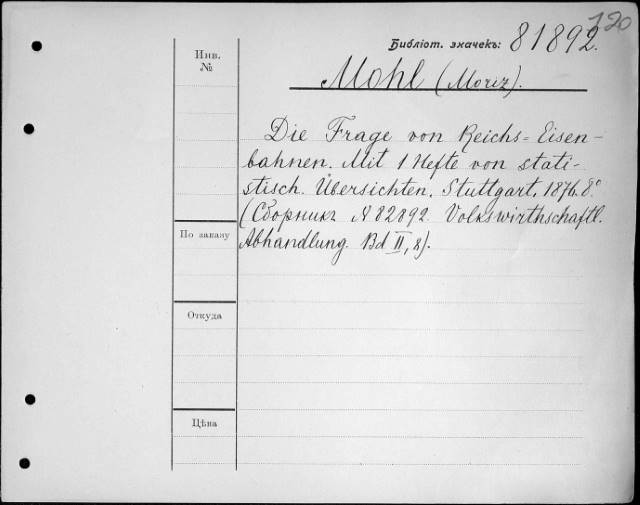 120
Библіот. значекъ: 81892.
Инв.
№
Mohl (Moriz).
Die Frage von Reichs=Eisen-
bahnen. Mit 1 Hefte von stati-
stisch. Übersichten. Stuttgart, 1876. 8°
(Сборникъ № 82892. Volkswirthschaftl.
Abhandlung. Bd II, 8).
По заказу
Откуда
Цѣна